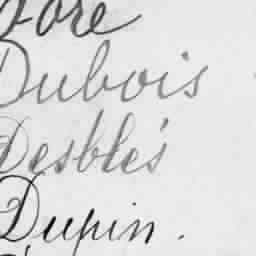 Dubois
Desblés
Dupin.